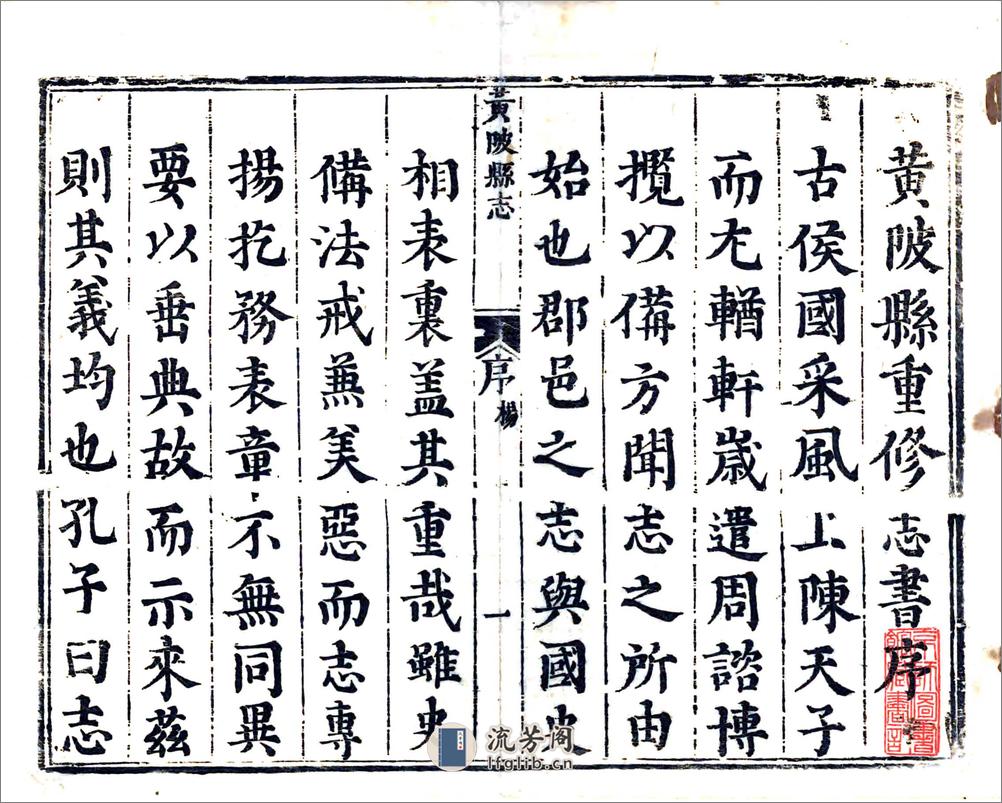 黃陂縣重修志書序
古侯國采風上陳天子
而尢輶軒嵗遣周諮博
攬以備方聞志之所由
始也郡邑之志與國史
黃陂縣志
序
楊
一
相表裏盖其重哉雖史
備法戒蕪美惡而志專
揚扢務表章不無同異
要以垂典故而示來茲
則其義均也孔子曰志
流芳阁
lfglib.cn